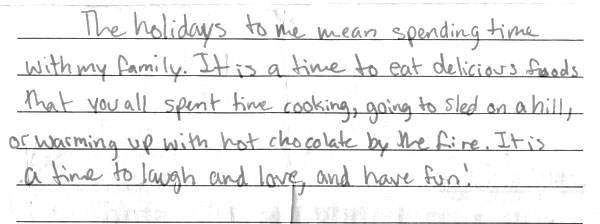 The holidays to me mean spending time
with my family. It is a time to eat delicious foods
that you all spent time cooking, going to sled on a hill,
or warming up with hot chocolate by the fire. It is
a time to laugh and love, and have fun!